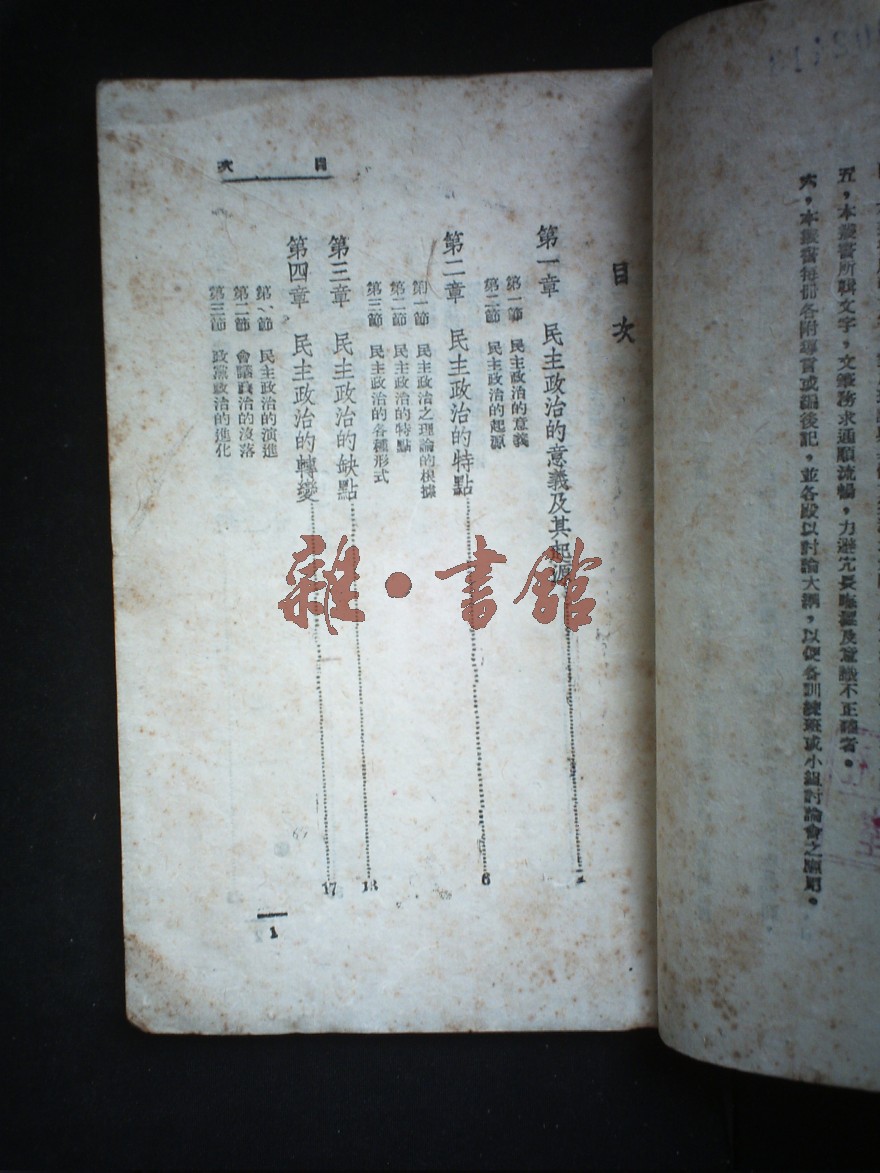 五，本叢書所輯文字，文筆務求通順流暢，力避冗長晦澀及意識不正確者。
六，本叢書每冊各附導言或編後記，並各殿以討論大綱，以便各訓練班或小組討論會之應用。
目次
第一章 民主政治的意義及其起源 1
第一節 民主政治的意義
第二節 民主政治的起源
第二章 民主政治的特點 6
第一節 民主政治之理論的根據
第二節 民主政治的特點
第三節 民主政治的各種形式
第三章 民主政治的缺點 13
第四章 民主政治的轉變 17
第一節 民主政治的演進
第二節 會議政治的沒落
第三節 政黨政治的進化
目次
1
雜·書館